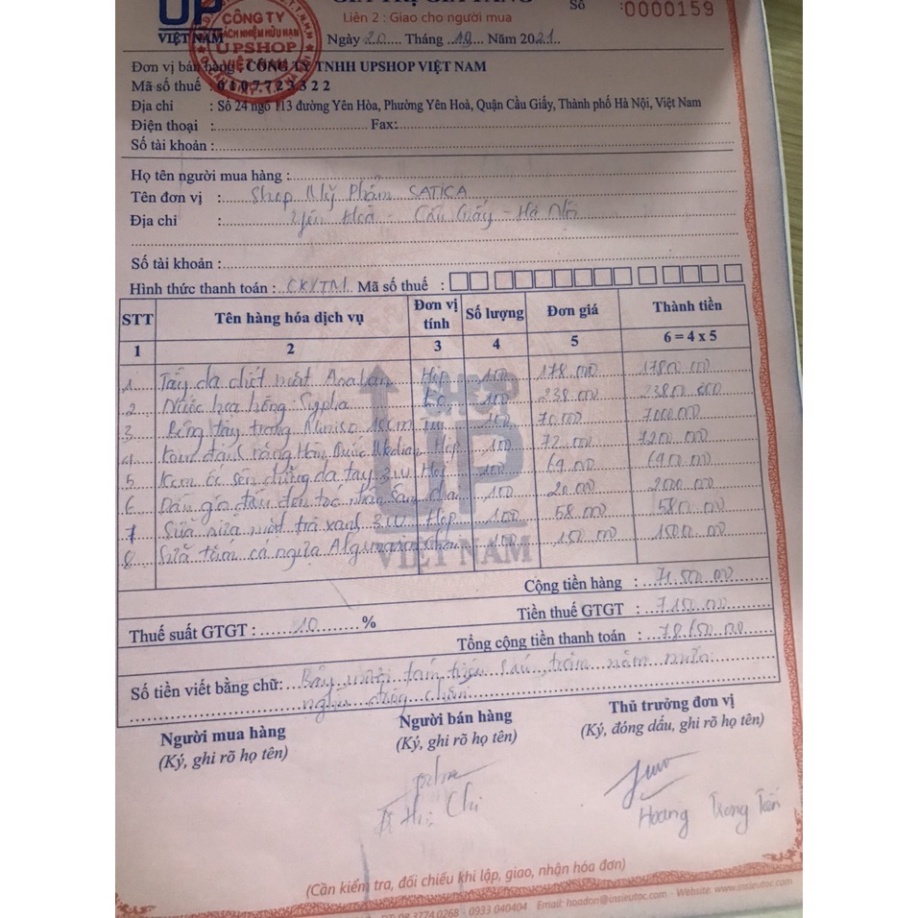 UP
VIỆT NAM
CÔNG TY
TRÁCH NHIỆM HỮU HẠN
UPSHOP
VIỆT NAM
GIÁ TRỊ GIA TĂNG
Liên 2 : Giao cho người mua
Số : 0000159
Ngày 20 Tháng 10 Năm 2021
Đơn vị bán hàng : CÔNG TY TNHH UPSHOP VIỆT NAM
Mã số thuế : 0107723322
Địa chỉ : Số 24 ngõ 113 đường Yên Hòa, Phường Yên Hoà, Quận Cầu Giấy, Thành phố Hà Nội, Việt Nam
Điện thoại : Fax:
Số tài khoản :
Họ tên người mua hàng :
Tên đơn vị : Shop Mỹ Phẩm SATICA
Địa chỉ : Yên Hoà - Cầu Giấy - Hà Nội
Số tài khoản:
Hình thức thanh toán : CK/TM Mã số thuế :
STT Tên hàng hóa dịch vụ Đơn vị tính Số lượng Đơn giá Thành tiền
1 2 3 4 5 6 = 4 x 5
1 Tẩy da chết mặt Hộp 100 178.000 17800.000
2 Nước hoa hồng Sypha 100 238.000
3 Bông tẩy trang 100 70.000 7000.000
4 Kem đánh răng Hàn Quốc Median Hộp 100 72.000 7200.000
5 Kem ốc sên dưỡng da tay 3W Hộp 100 69.000
6 Dầu gội 100 20.000 2000.000
7 Sữa rửa mặt trà xanh 3W Hộp 100 58.000 5800.000
8 Sữa tắm cá ngựa 100 150.000
SHOP
UP
VIỆT NAM
Cộng tiền hàng : 71.500.000
Thuế suất GTGT : 10 % Tiền thuế GTGT : 7.150.000
Tổng cộng tiền thanh toán : 78.650.000
Số tiền viết bằng chữ: Bảy mươi tám triệu sáu trăm năm mươi
nghìn đồng chẵn
Người mua hàng Người bán hàng Thủ trưởng đơn vị
(Ký, ghi rõ họ tên) (Ký, ghi rõ họ tên) (Ký, đóng dấu, ghi rõ họ tên)
Chi Hoàng Trọng
(Cần kiểm tra, đối chiếu khi lập, giao, nhận hóa đơn)
3774.0268 - 0933 040404 Email: hoadon@ussieutoc.com - Website: www.ussieutoc.com